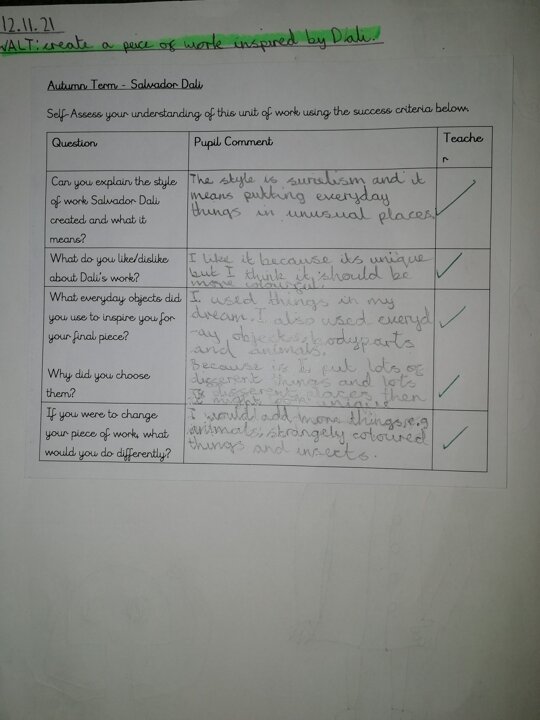 12.11.21
WALT: create a peice of work inspired by Dali.
Autumn Term - Salvador Dali
Self-Assess your understanding of this unit of work using the success criteria below.
Question
Pupil Comment
Teache
r
Can you explain the style
of work Salvador Dali
created and what it
means?
The style is surelism and it
means putting everyday
things in unusual places
What do you like/dislike
about Dali's work?
I like it because its unique
but I think it should be
more colourful.
What everyday objects did
you use to inspire you for
your final piece?
I used things in my
dream. I also used everyd
-ay objects, bodyparts
and animals.
Why did you choose
them?
Because is I put lots of
different things and lots
different places then
unique
If you were to change
your piece of work, what
would you do differently?
I would add more things, e.g
animals, strangely coloured
things and insects.